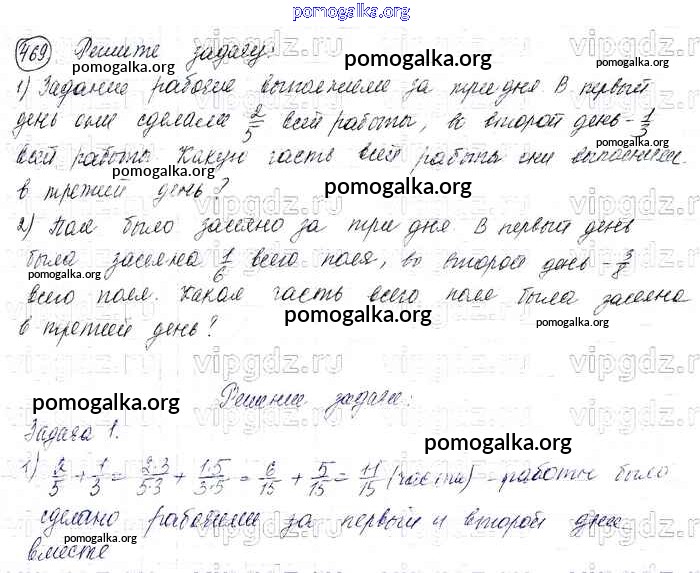 pomogalka.org
469 Решите задачу:
1) Задание рабочие выполнили за три дня. В первый
день они сделали 2/5 всей работы, во второй день - 1/3
всей работы. Какую часть всей работы они выполнили
в третий день?
2) Поле было засеяно за три дня. В первый день
была засеяна 1/6 всего поля, во второй день - 3/8
всего поля. Какая часть всего поля была засеяна
в третий день?
Решение задачи:
Задача 1.
1) 2/5 + 1/3 = 2·3/5·3 + 1·5/3·5 = 6/15 + 5/15 = 11/15 (части) - работы было
сделано рабочими за первый и второй дни
вместе